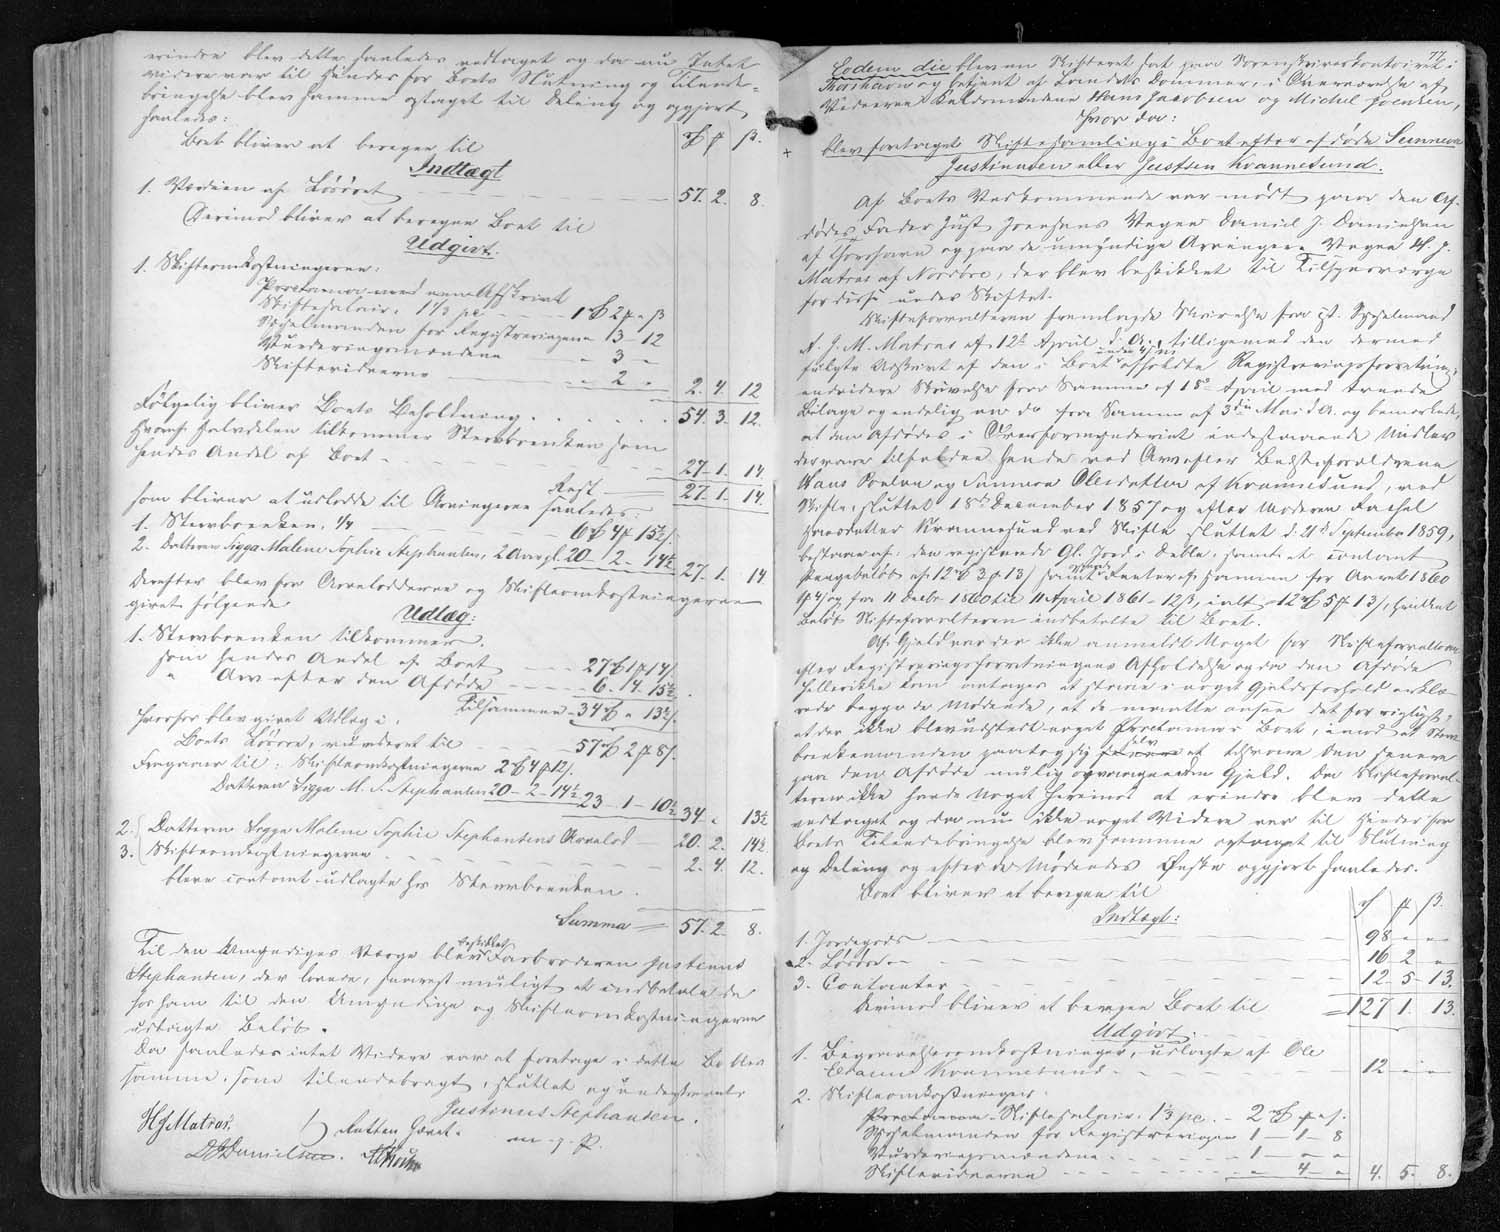 erindre blev dette saaledes vedtaget og da nu Intet
videre var til Hinder for Boets Slutning og Tilende-
bringelse blev samme optaget til Deling og opgjort
saaledes:
Boet bliver at beregne til
Indtægt
1. Værdien af Løsøret 57. 2. 8.
Derimod bliver at beregne Boet til
Udgivt.
1. Skifteomkostningerne:
Proclama med Afskrivt
Skiftesalair, 1⅓ pc
Sysselmanden for Registreringen 1 3 12
Vurderingsmændene - 3 -
Skiftevidnerne - 2 - 2. 4. 12
Følgelig bliver Boets Beholdning 54. 3. 12.
hvoraf Halvdelen tilkommer Stervboenken som
hendes Andel af Boet 27. 1. 14
Rest 27. 1. 14.
som bliver at udlodde til Arvingerne saaledes:
1. Stervboenken, 1/4 6 4 15½
2. Datteren Sigga Malene Sophie Stephansen, 2 Aar gl. 20 - 2 - 14½ 27. 1. 14
derefter blev for Arvelodderne og Skifteomkostningerne
givet følgende
Udlæg:
1. Stervboenken tilkommer,
som hendes Andel af Boet 27 1 14
" Arv efter den Afdøde 6. 14. 15½
Tilsammen 34 " 13½
hvorfor blev givet Udlæg i,
Boets Løsøre, vurderet til 57 2 8
Fragaaer til: Skifteomkostningerne 2 4 12
Datteren Sigga M. S. Stephansen 20 - 2 - 14½ 23 - 1 - 10½ 34 " 13½
2. Datteren Sigga Malene Sophie Stephansens Arvelod 20. 2. 14½
3. Skifteomkostningerne 2. 4. 12.
bleve contant udlagte hos Stervboenken.
Summa 57. 2. 8.
Til den Umyndiges Værge blev beskikket Farbroderen Justinus
Stephansen, der lovede, snarest muligt at indbetale de
hos ham til den Umyndige og Skifteomkostningerne
udlagte Beløb.
Da saaledes intet Videre var at foretage i dette Bo blev
samme, som tilendebragt, sluttet og underskrevet
Justinus Stephansen.
m. f. P.
HJMatras. Retten hævet.
DJDanielsen.
77.
Eodem die blev en Skifteret sat paa Sorenskriverkontoiret i
Thorshavn og betjent af Landets Dommer, i Overværelse af
Vidnerne Retsmændene Hans Jacobsen og Michel Joensen,
hvor da:
blev foretaget Skiftesamling i Boet efter afdøde Sunneva
Justinusen eller Justsen Kvannesund.
Af Boets Vedkommende var mødt paa den Af-
dødes Fader Just Joensens Vegne Daniel J. Danielsen
af Thorshavn og paa de umyndige Arvingers Vegne H. J.
Matras af Nordbre, der blev beskikket til Tilsynsværge
for disse under Skiftet.
Skifteforvalteren fremlagde Skrivelse fra st. Sysselmand
H. J. M. Matras af 12te April d. A., tilligemed den dermed
fulgte Udskrivt af den i Boet afholdte Registreringsforretning,
endvidere Skrivelse fra Samme af 18de April med trende
Bilage og endelig en do fra Samme af 3die Mai d. A. og bemærkede,
at den Afdødes i Overformynderiet indestaaende Midler
der vare tilfaldne hende ved Arv efter Bedsteforældrene
Hans Poulsen og Sunneva Olesdatter af Kvannesund, ved
Skifte, sluttet 18de December 1857 og efter Moderen Rachel
Hansdatter Kvannesund ved Skifte sluttet d: 21de September 1859,
bestaae af: den registrerede Gl. Jord i Deble, samt et contant
Pengebeløb af 12 3 13 samt Renter af samme for Aaret 1860
og fra 11 Decbr 1860 til 11 April 1861 - 12, ialt = 12 5 13, hvilket
Beløb Skifteforvalteren indbetalte til Boet.
Af Gjeld var der ikke anmeldt Noget for Skifteforvalteren
efter Registreringsforretningens Afholdelse og da den Afdøde
hellerikke kan antages at staae i noget Gjeldsforhold erklæ-
rede begge de Mødende, at de maatte ansee det for rigtigst,
at der ikke blev udstedt noget Proclama i Boet, imod at Sterv-
boekemanden paatog sig selv at tilsvare den senere
paa den Afdøde mulig opvaagnende Gjeld. Da Skifteforval-
teren ikke havde Noget herimod at erindre blev dette
vedtaget og da nu ikke noget Videre var til Hinder for
Boets Tilendebringelse blev samme optaget til Slutning
og Deling og efter de Mødendes Ønske opgjort saaledes.
Boet bliver at beregne til
Indtægt:
1. Jordegods 98 " "
2. Løsøre 16 2 "
3. Contanter 12. 5 - 13.
Derimod bliver at beregne Boet til 127 1. 13.
Udgivt.
1. Begravelsesomkostninger, udlagte af Ole
Kvannesund 12 " "
2. Skifteomkostninger:
Proclama - Skiftesalair, 1⅓ pc. 2
Sysselmanden for Registreringen 1 - 1 - 8
Vurderingsmændene 1 - " "
Skiftevidnerne " 4 - " 4. 5. 8.